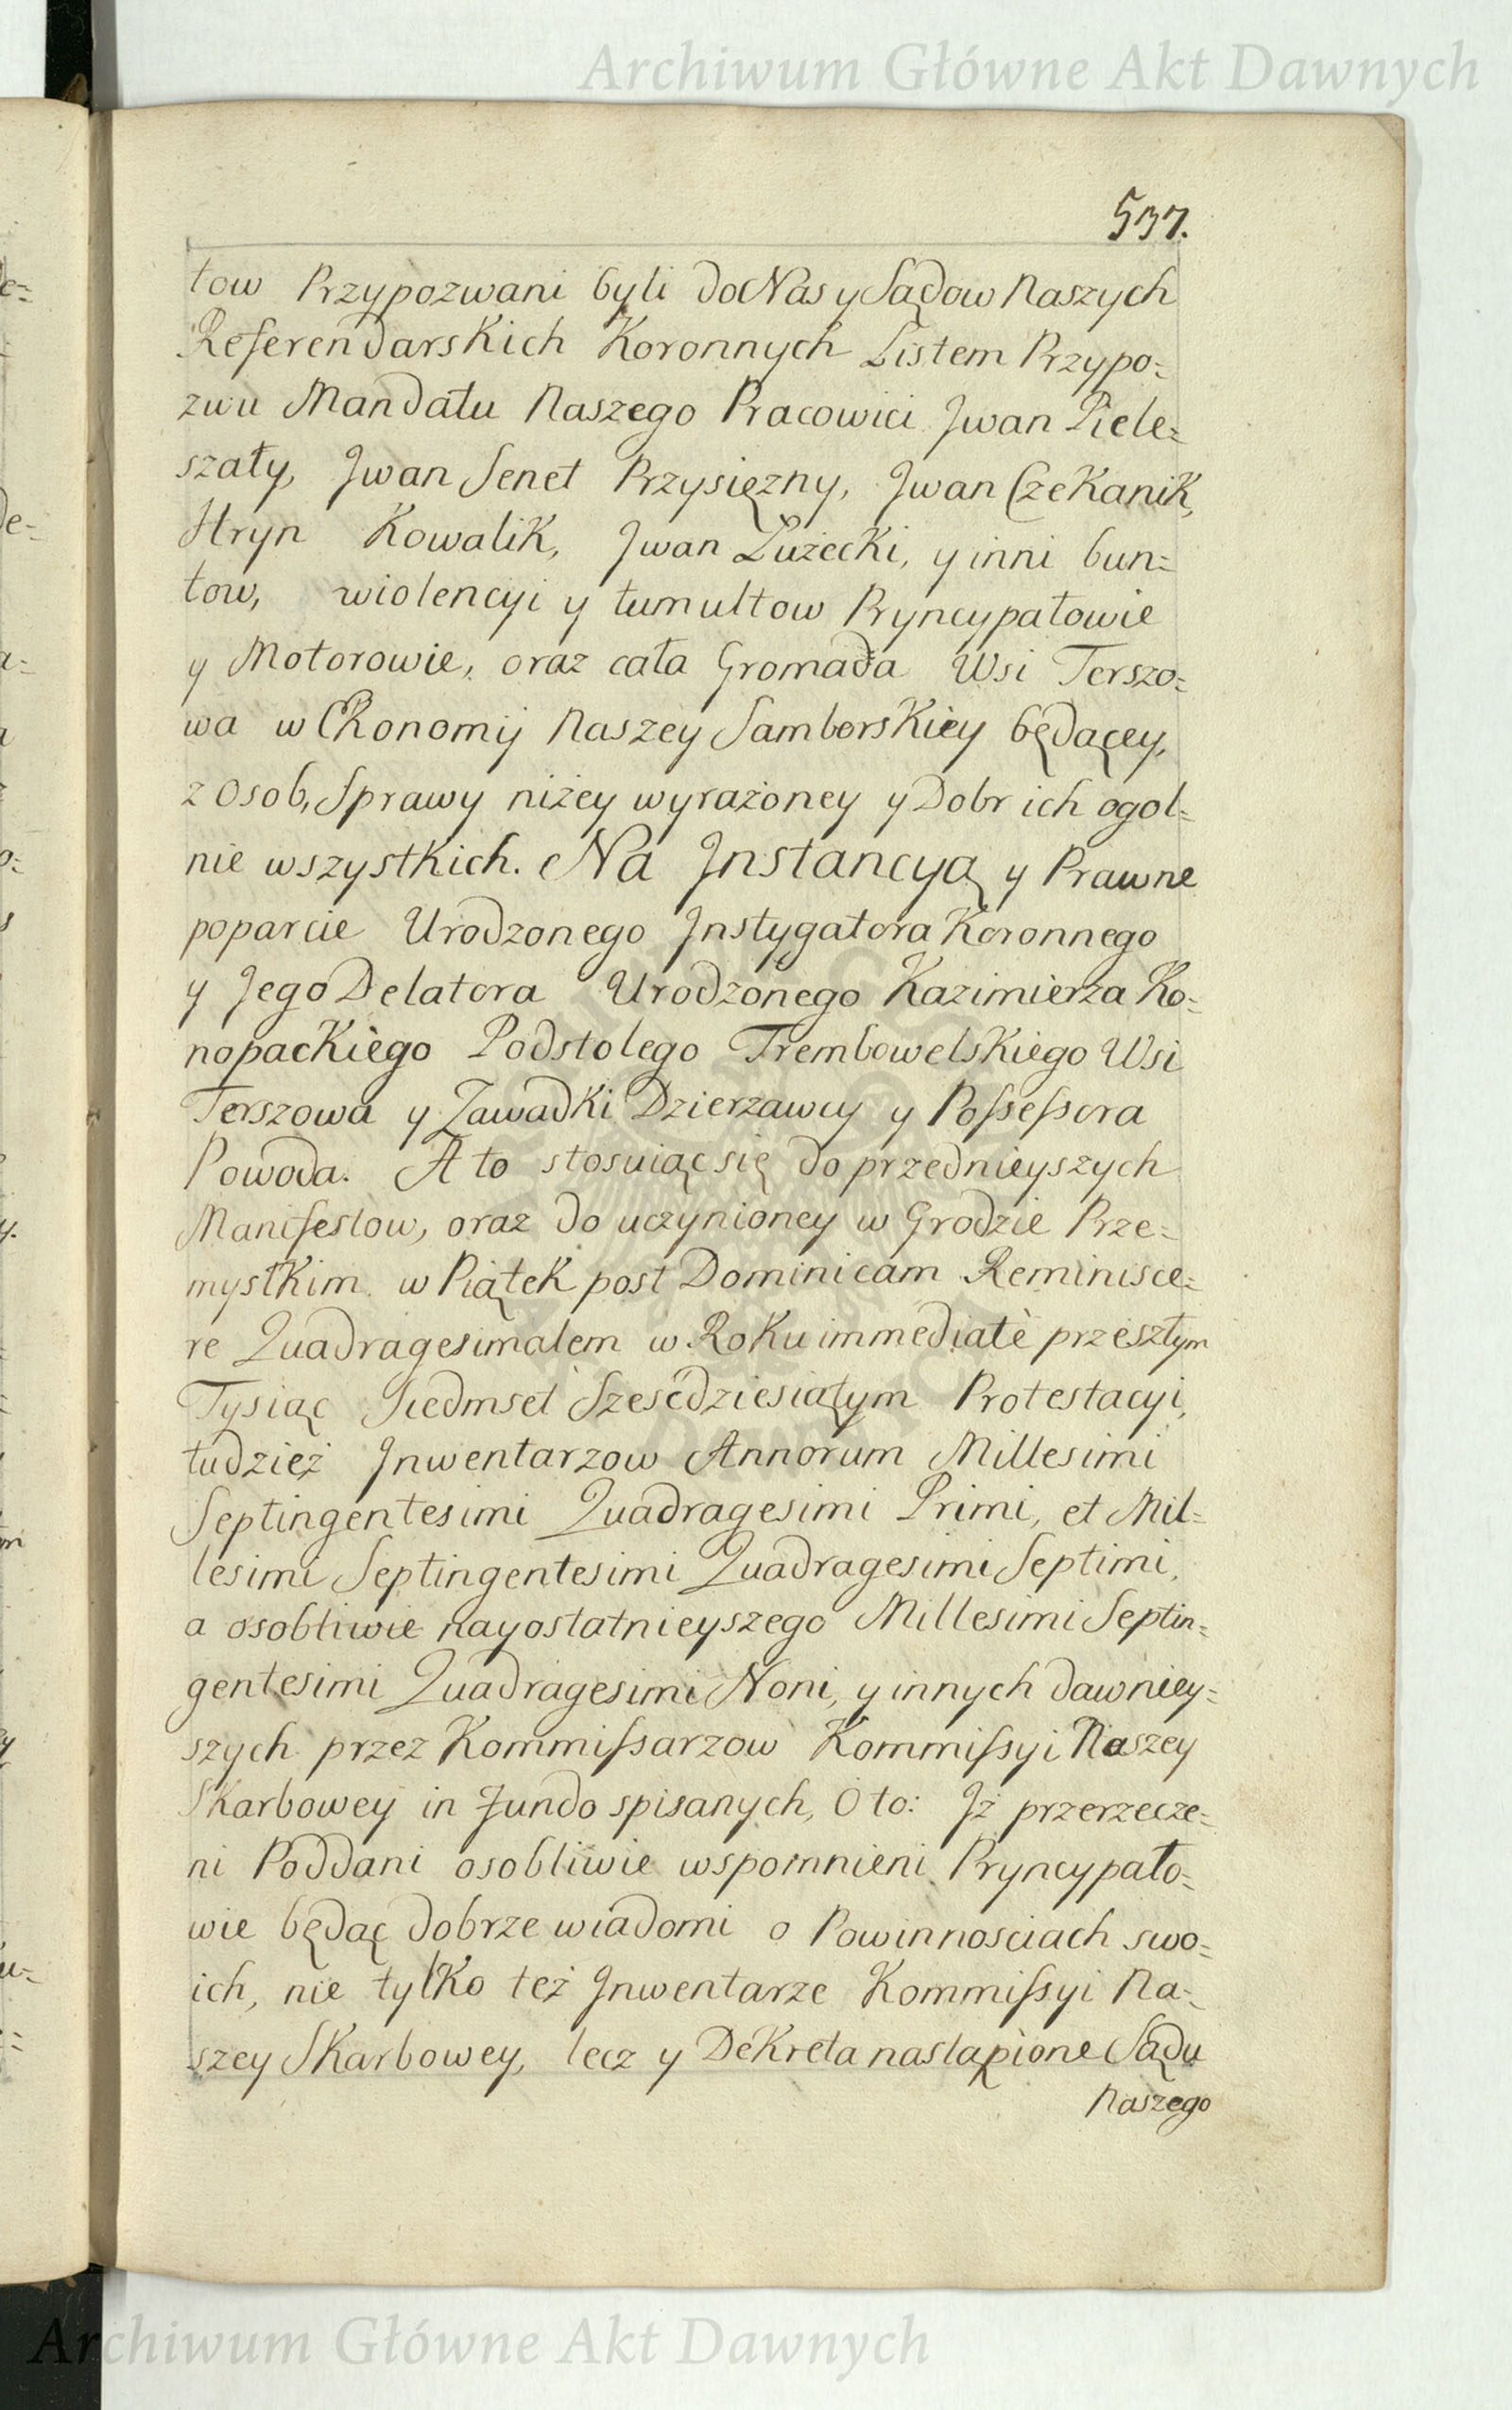 Archiwum Główne Akt Dawnych
537.
tow Przypozwani byli do Nas y Sądow Naszych
Referendarskich Koronnych Listem Przypo=
zwu Mandatu Naszego Pracowici Jwan Piele=
szały, Jwan Senet Przysięzny, Jwan Czekanik,
Hryn Kowalik, Jwan Łużecki, y inni bun=
tow, wiolencyi y tumultow Pryncypałowie
y Motorowie, oraz cała Gromada Wsi Terszo=
wa w Ekonomij Naszey Samborskiey będącey,
z Osob, Sprawy niżey wyrażoney y Dobr ich ogol=
nie wszystkich. Na Jnstancyą y Prawne
poparcie Urodzonego Jnstygatora Koronnego
y Jego Delatora Urodzonego Kazimierza Ko=
nopackiego Podstolego Trembowelskiego Wsi
Terszowa y Zawadki Dzierzawcy y Possessora
Powoda. A to stosuiąc się do przednieyszych
Manifestow, oraz do uczynioney w Grodzie Prze=
myskim w Piątek post Dominicam Reminisce=
re Quadragesimalem w Roku immediatè przeszłym
Tysiąc Siedmset Sześćdziesiątym Protestacyi,
tudzież Jnwentarzow Annorum Millesimi
Septingentesimi Quadragesimi Primi, et Mil=
lesimi Septingentesimi Quadragesimi Septimi,
a osobliwie nayostatnieyszego Millesimi Septin=
gentesimi Quadragesimi Noni, y innych dawniey=
szych przez Kommissarzow Kommissyi Naszey
Skarbowey in Fundo spisanych, O to: Jż przerzecze=
ni Poddani osobliwie wspomnieni Pryncypało=
wie będąc dobrze wiadomi o Powinnosciach swo=
ich, nie tylko też Jnwentarze Kommissyi Na=
szey Skarbowey, lecz y Dekreta nastąpione Sądu
Naszego
Archiwum Główne Akt Dawnych